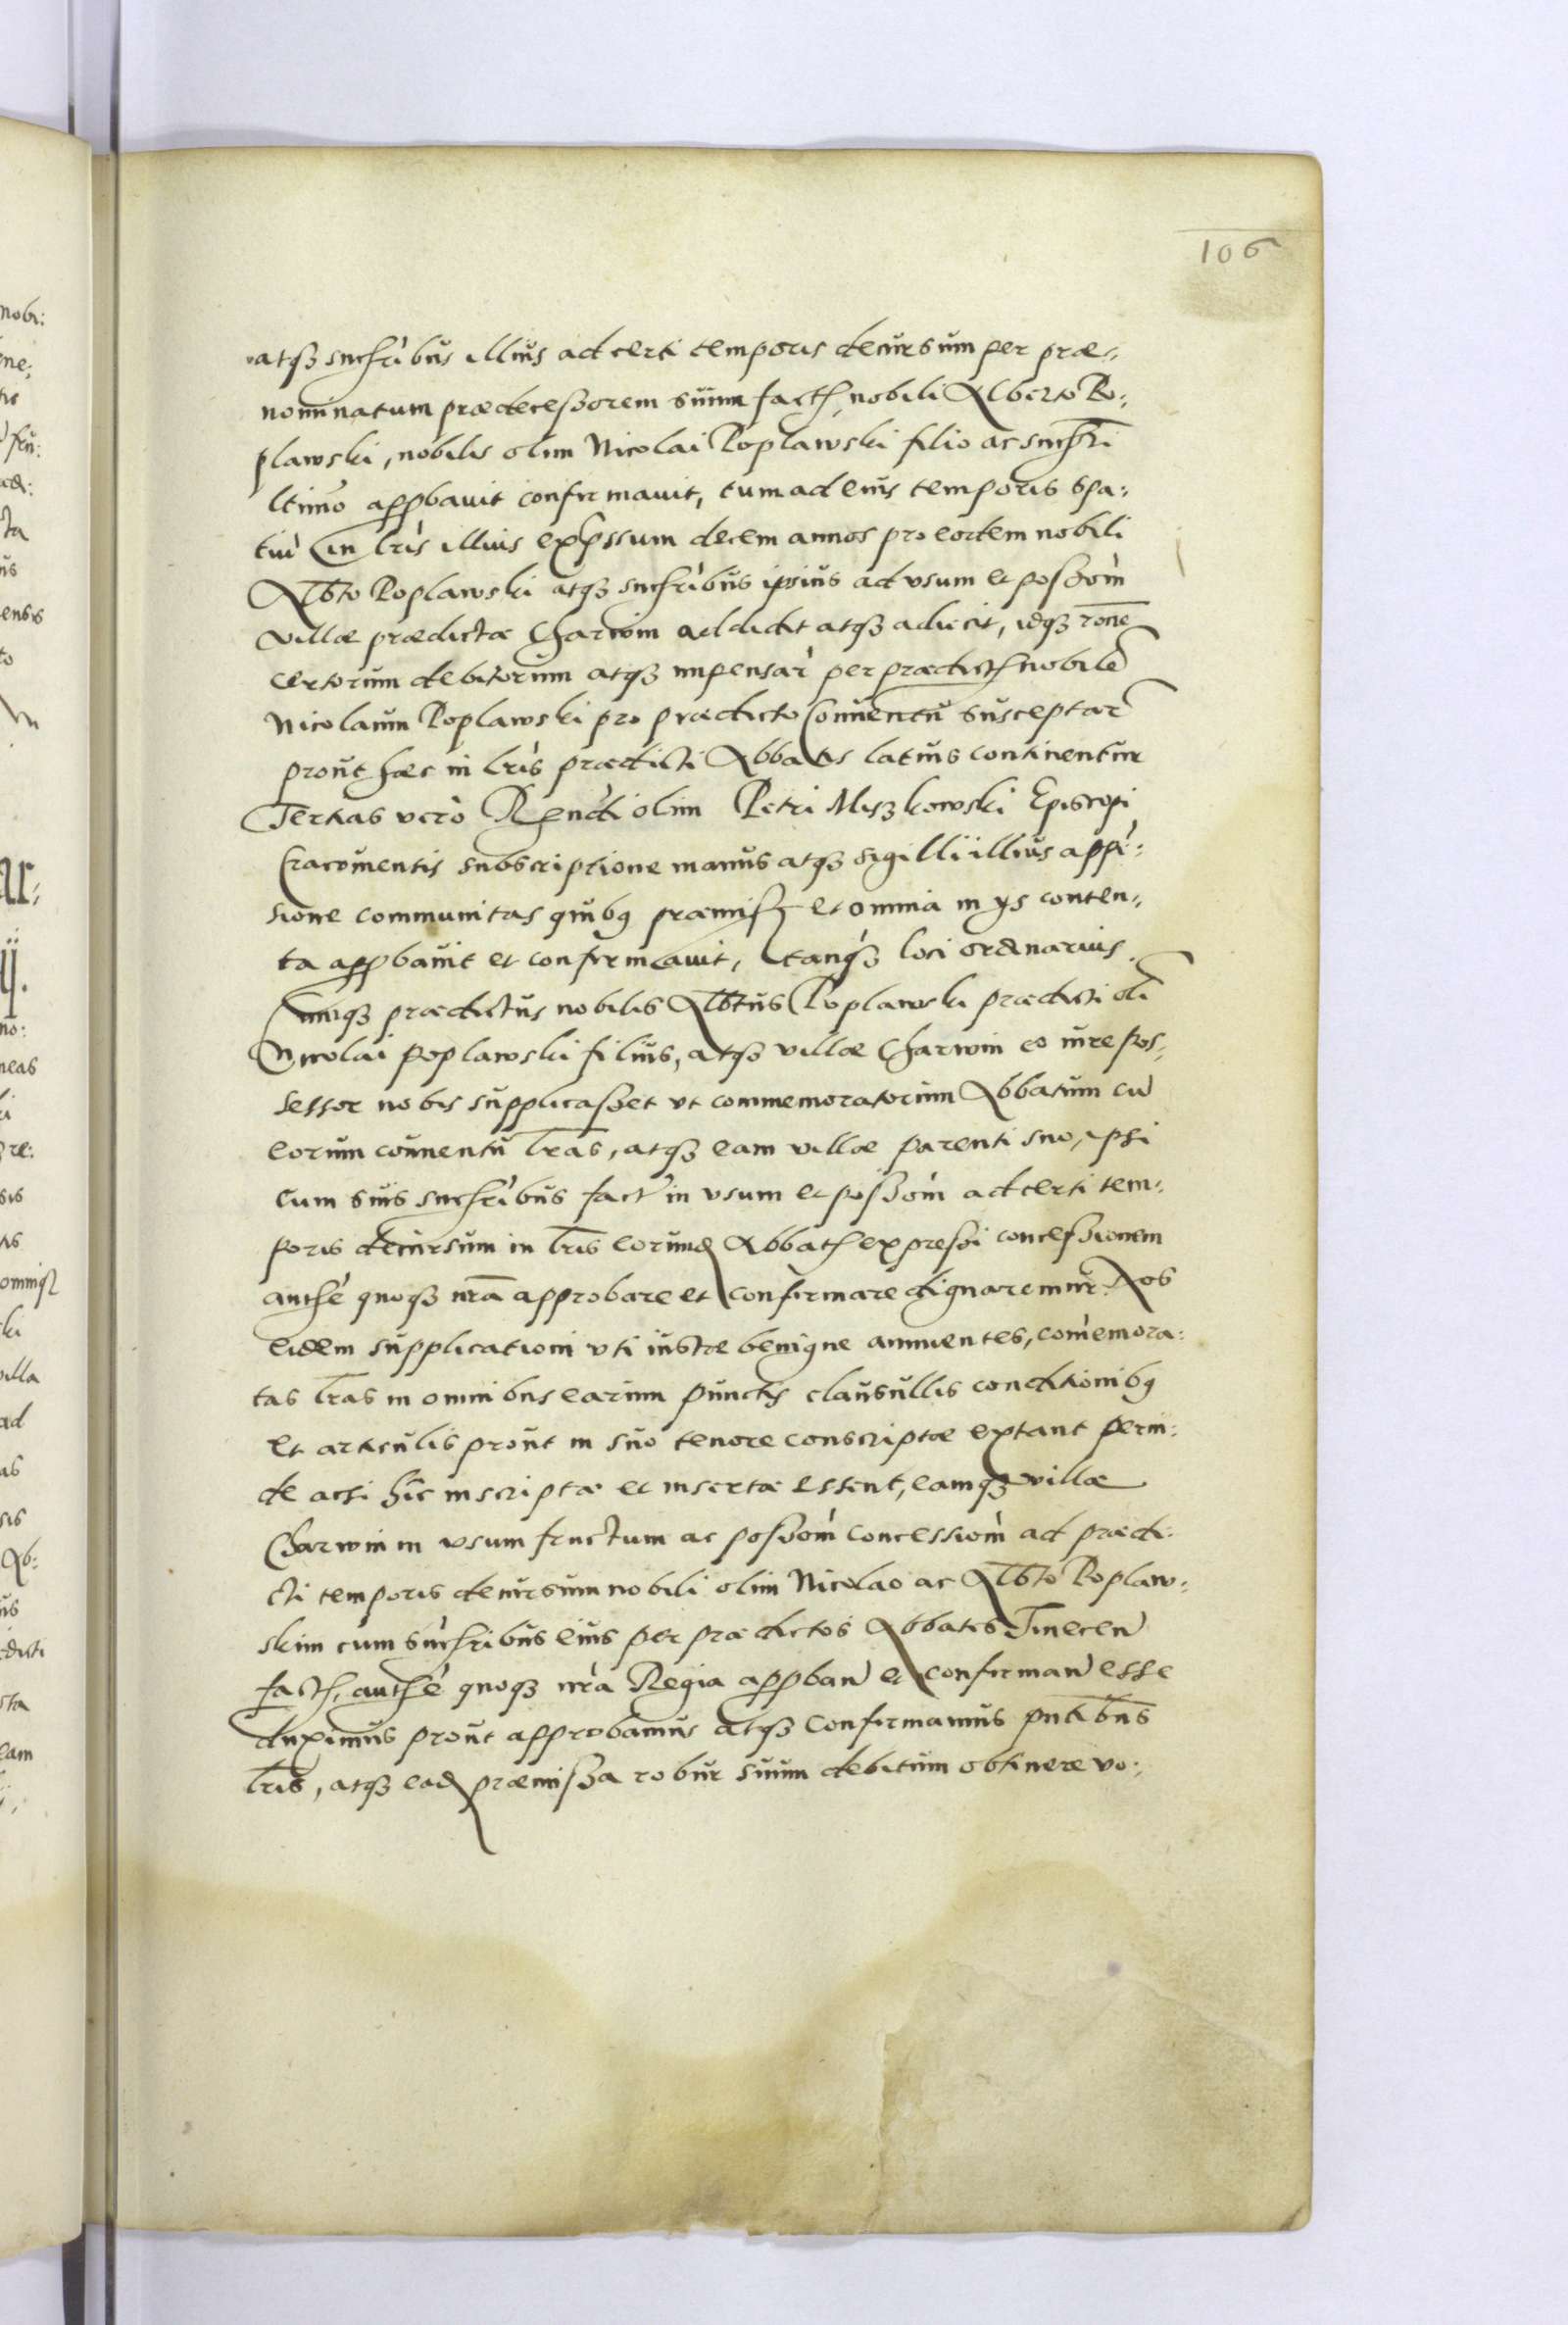 106
atqȝ succrībus illius ad certi temporis decursum per præ-,
nominatum prædecessorem suum fact, nobili Alberto Po:,
plawski, nobilis olim Nicolai Poplawski filio ac succri
ltimo appbavit confirmavit, tum ad eius temporis spa:
tiu in lris illius expssum decem annos pro eodem nobili
Albto Poplawski atqȝ succribus ipsius ad vsum et possom
villæ prædictæ Charwin addidit atqȝ adiecit, idqȝ rone
certorum debitorum atqȝ impensar per prædict nobile
Nicolaum Poplawski pro prædicto Conuentu susceptar
prout hæc in lris prædicti Abbatis latius continentur
Tertias vero Rendi olim Petri Miszkowski Episcopi
Cracouientis subscriptione manus atqȝ sigilli illius appr:
sione communitas quibq præmiss et omnia in ijs conten-,
ta appbavit et confirmavit, tanqȝ loci ordinarius.
Cumqȝ prædictus nobilis Albtus Poplawski prædicti oli
Nicolai Poplawski filius, atqȝ villæ Charwin eo iure pos-,
sessor nobis supplicasset vt commemoratorum Abbatum cu
eorum conuentu lras, atqȝ eam villæ parenti suo, ipsi
cum suis succribus fact in vsum et possom ad certi tem-.
poris decursum in lris eorund Abbat expressi concessionem
authe quoqȝ nra approbare et confirmare dignaremur. Nos
eidem supplicationi vti iustæ benigne annuentes, comemora:
tas lras in omnibus earum punctis clausullis conditionibq
et articulis prout in suo tenore conscriptæ extant perin:
de acsi hic inscriptæ et insertæ essent, eamqȝ villæ
Charwin in vsum fructum ac possom concessiom ad prædi:
cti temporis decursum nobili olim Nicolao ac Albto Poplaw:
skim cum succribus eius per prædictos Abbates Tinecen
fact, authe quoqȝ nra Regia appban et confirman esse
duximus prout approbamus atqȝ confirmamus pntibus
lris, atqȝ ead præmissa robur suum debitum obtinere vo:,